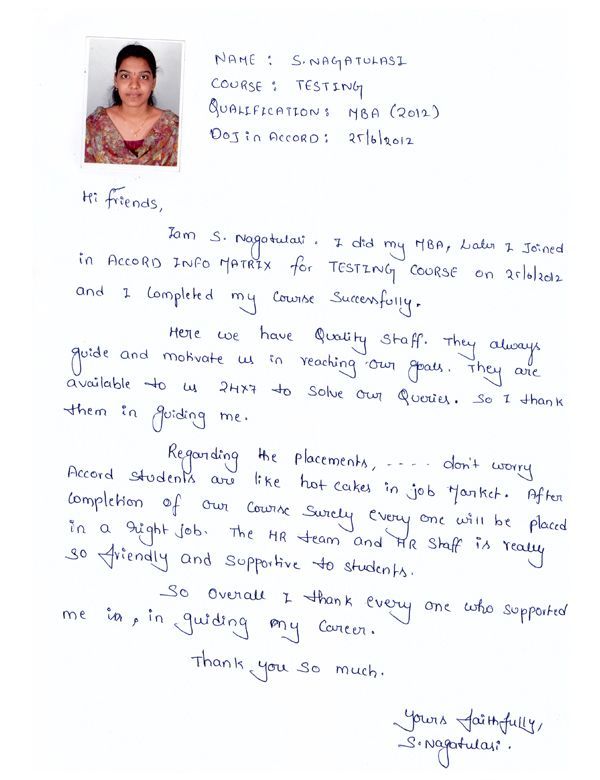 NAME : S. NAGATULASI
COURSE : TESTING
QUALIFICATION : MBA (2012)
DOJ in ACCORD : 25/6/2012
Hi friends,
Iam S. Nagatulasi. I did my MBA, Later I Joined
in ACCORD INFO MATRIX for TESTING COURSE on 25/6/2012
and I Completed my Course Successfully.
Here we have Quality Staff. They always
guide and motivate us in reaching our goals. They are
available to us 24x7 to Solve our Queries. So I thank
them in guiding me.
Regarding the placements, .... don't worry
Accord Students are like hot cakes in job Market. After
completion of our Course Surely every one will be placed
in a right job. The HR team and HR Staff is really
so friendly and Supportive to students.
So Overall I thank every one who supported
me in, in guiding my Career.
Thank you so much.
Yours faithfully,
S. Nagatulasi.